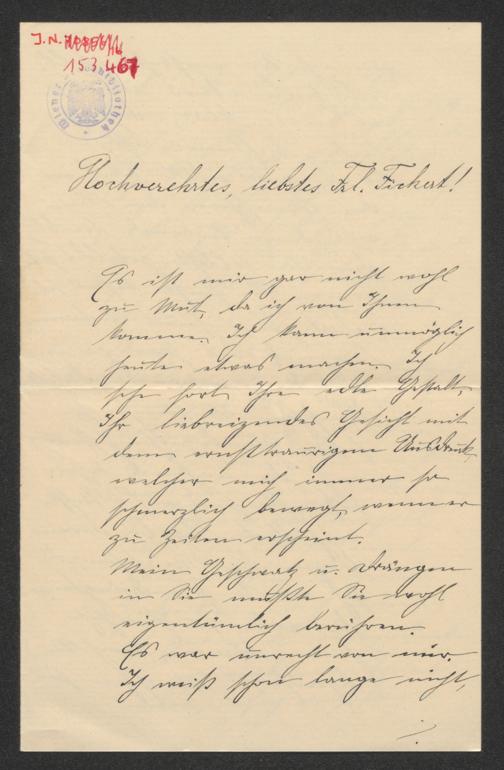 J.N.
153467
Wiener Bibliothek
Hochverehrtes, liebstes Frl. Fickert!
Es ist mir gar nicht wohl
zu Mut, da ich von Ihnen
komme. Ich kann unmöglich
heute etwas machen. Ich
sehe fort Ihre edle Gestalt,
Ihr liebreizendes Gesicht mit
dem ernsttraurigen Ausdruck,
welcher mich immer so
schmerzlich bewegt, wenn er
zu Zeiten erscheint.
Mein Geschwatz u. Drängen
in Sie mußte Sie wohl
eigentümlich berühren.
Es war unrecht von mir.
Ich weiß schon lange nicht,